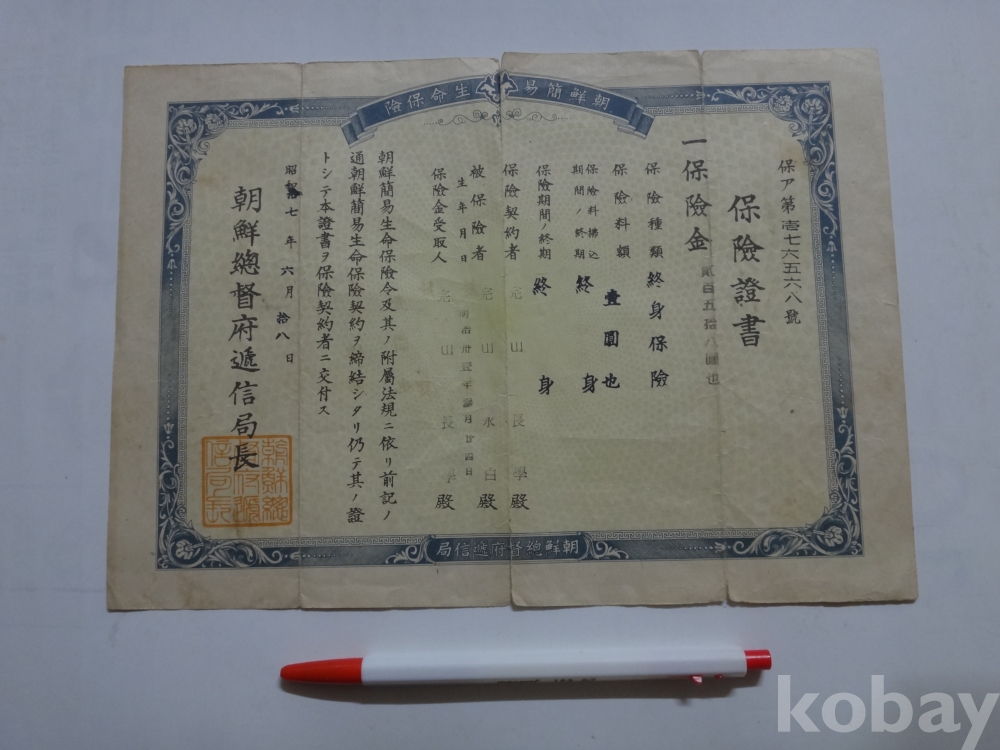 朝鮮簡易生命保險
保ア第壱七六五六八號
保險證書
一保險金 貳百五拾八圓也
保險種類 終身保險
保險料額 壹圓也
保險料拂込期間ノ終期 終身
保險期間ノ終期 終身
保險契約者 山長學殿
被保險者 山永白殿
生年月日 明治卅 年 月廿四日
保險金受取人 山長學殿
朝鮮簡易生命保險令及其ノ附屬法規ニ依リ前記ノ
通朝鮮簡易生命保險契約ヲ締結シタリ仍テ其ノ證
トシテ本證書ヲ保險契約者ニ交付ス
昭和拾七年六月拾八日
朝鮮總督府遞信局長
朝鮮總督府遞信局
kobay